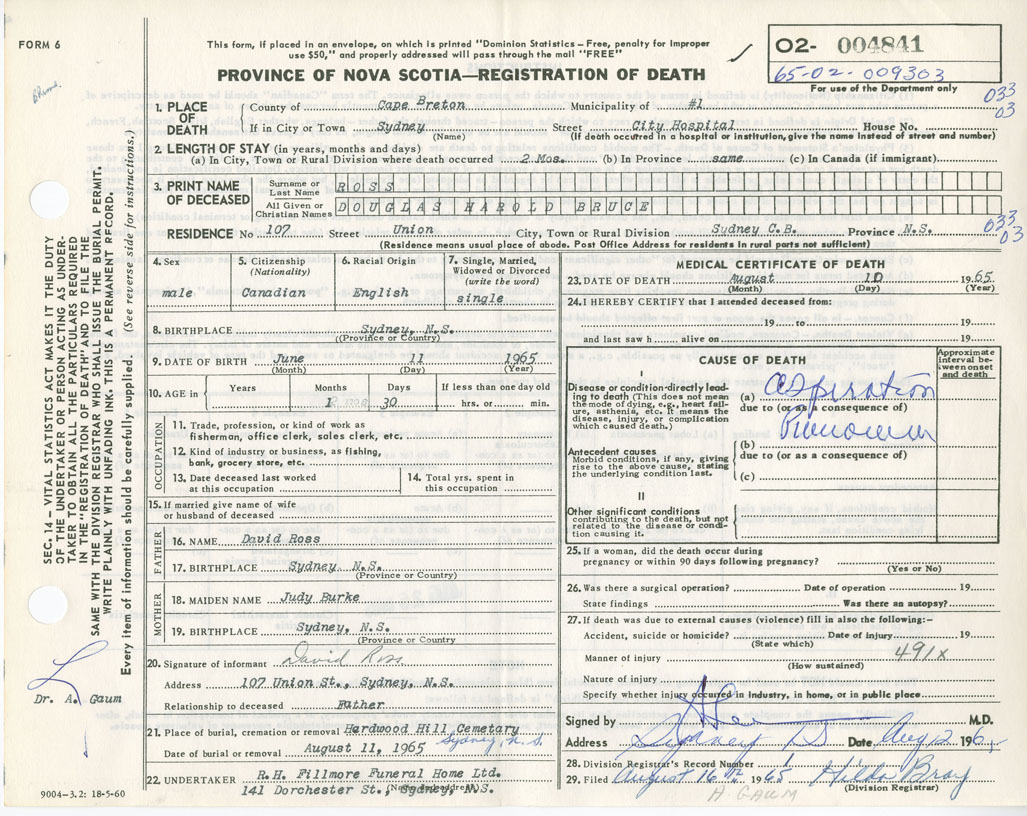 FORM 6
This form, if placed in an envelope, on which is printed "Dominion Statistics - Free, penalty for improper
use $50," and properly addressed will pass through the mail "FREE"
PROVINCE OF NOVA SCOTIA—REGISTRATION OF DEATH
O2- 004841
65-02-009303
For use of the Department only
033
03
1. PLACE OF DEATH County of Cape Breton Municipality of #1
If in City or Town Sydney Street City Hospital House No.
(Name) (If death occurred in a hospital or institution, give the name instead of street and number)
2. LENGTH OF STAY (in years, months and days)
(a) In City, Town or Rural Division where death occurred 2 Mos. (b) In Province same (c) In Canada (if immigrant)
3. PRINT NAME OF DECEASED Surname or Last Name ROSS
All Given or Christian Names DOUGLAS HAROLD BRUCE
033
03
RESIDENCE No 107 Street Union City, Town or Rural Division Sydney C.B. Province N.S.
(Residence means usual place of abode. Post Office Address for residents in rural parts not sufficient)
4. Sex male
5. Citizenship (Nationality) Canadian
6. Racial Origin English
7. Single, Married, Widowed or Divorced (write the word) single
8. BIRTHPLACE Sydney, N.S.
(Province or Country)
9. DATE OF BIRTH June 11 1965
(Month) (Day) (Year)
10. AGE in Years Months Days If less than one day old
1 30 hrs. or min.
OCCUPATION
11. Trade, profession, or kind of work as
fisherman, office clerk, sales clerk, etc.
12. Kind of industry or business, as fishing,
bank, grocery store, etc.
13. Date deceased last worked
at this occupation
14. Total yrs. spent in
this occupation
15. If married give name of wife
or husband of deceased
FATHER
16. NAME David Ross
17. BIRTHPLACE Sydney N.S.
(Province or Country)
MOTHER
18. MAIDEN NAME Judy Burke
19. BIRTHPLACE Sydney, N.S.
(Province or Country)
20. Signature of informant David Ross
Address 107 Union St., Sydney, N.S.
Relationship to deceased Father
21. Place of burial, cremation or removal Hardwood Hill Cemetary
Sydney, N.S.
Date of burial or removal August 11, 1965
22. UNDERTAKER R.H. Fillmore Funeral Home Ltd.
141 Dorchester St., Sydney, N.S.
(Name and address)
MEDICAL CERTIFICATE OF DEATH
23. DATE OF DEATH August 10 1965
(Month) (Day) (Year)
24. I HEREBY CERTIFY that I attended deceased from:
19 to 19
and last saw h alive on 19
CAUSE OF DEATH
Approximate interval between onset and death
I
Disease or condition directly leading
to death (This does not mean
the mode of dying, e.g., heart failure,
asthenia, etc. It means the
disease, injury, or complication
which caused death.)
(a) aspiration
due to (or as a consequence of)
(b)
due to (or as a consequence of)
Antecedent causes
Morbid conditions, if any, giving
rise to the above cause, stating
the underlying condition last.
(c)
II
Other significant conditions
contributing to the death, but not
related to the disease or condition
causing it.
25. If a woman, did the death occur during
pregnancy or within 90 days following pregnancy?
(Yes or No)
26. Was there a surgical operation? Date of operation 19
State findings Was there an autopsy?
27. If death was due to external causes (violence) fill in also the following:-
Accident, suicide or homicide? Date of injury 19
(State which)
Manner of injury 491x
(How sustained)
Nature of injury
Specify whether injury occurred in industry, in home, or in public place
Signed by M.D.
Address Sydney NS Date Aug 12 196
28. Division Registrar's Record Number 1
29. Filed August 16th 1965 Hilda Bray
(Division Registrar)
A. GAUM
SEC. 14 – VITAL STATISTICS ACT MAKES IT THE DUTY
OF THE UNDERTAKER OR PERSON ACTING AS UNDER-
TAKER TO OBTAIN ALL THE PARTICULARS REQUIRED
IN THE "REGISTRATION OF DEATH" AND TO FILE THE
SAME WITH THE DIVISION REGISTRAR WHO SHALL ISSUE THE BURIAL PERMIT.
WRITE PLAINLY WITH UNFADING INK. THIS IS A PERMANENT RECORD.
Every item of information should be carefully supplied. (See reverse side for instructions.)
Dr. A. Gaum
9004-3.2: 18-5-60